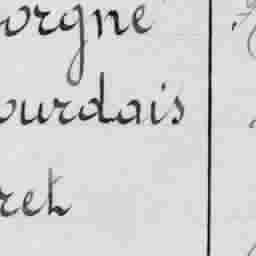 orgne
ourdais
ret